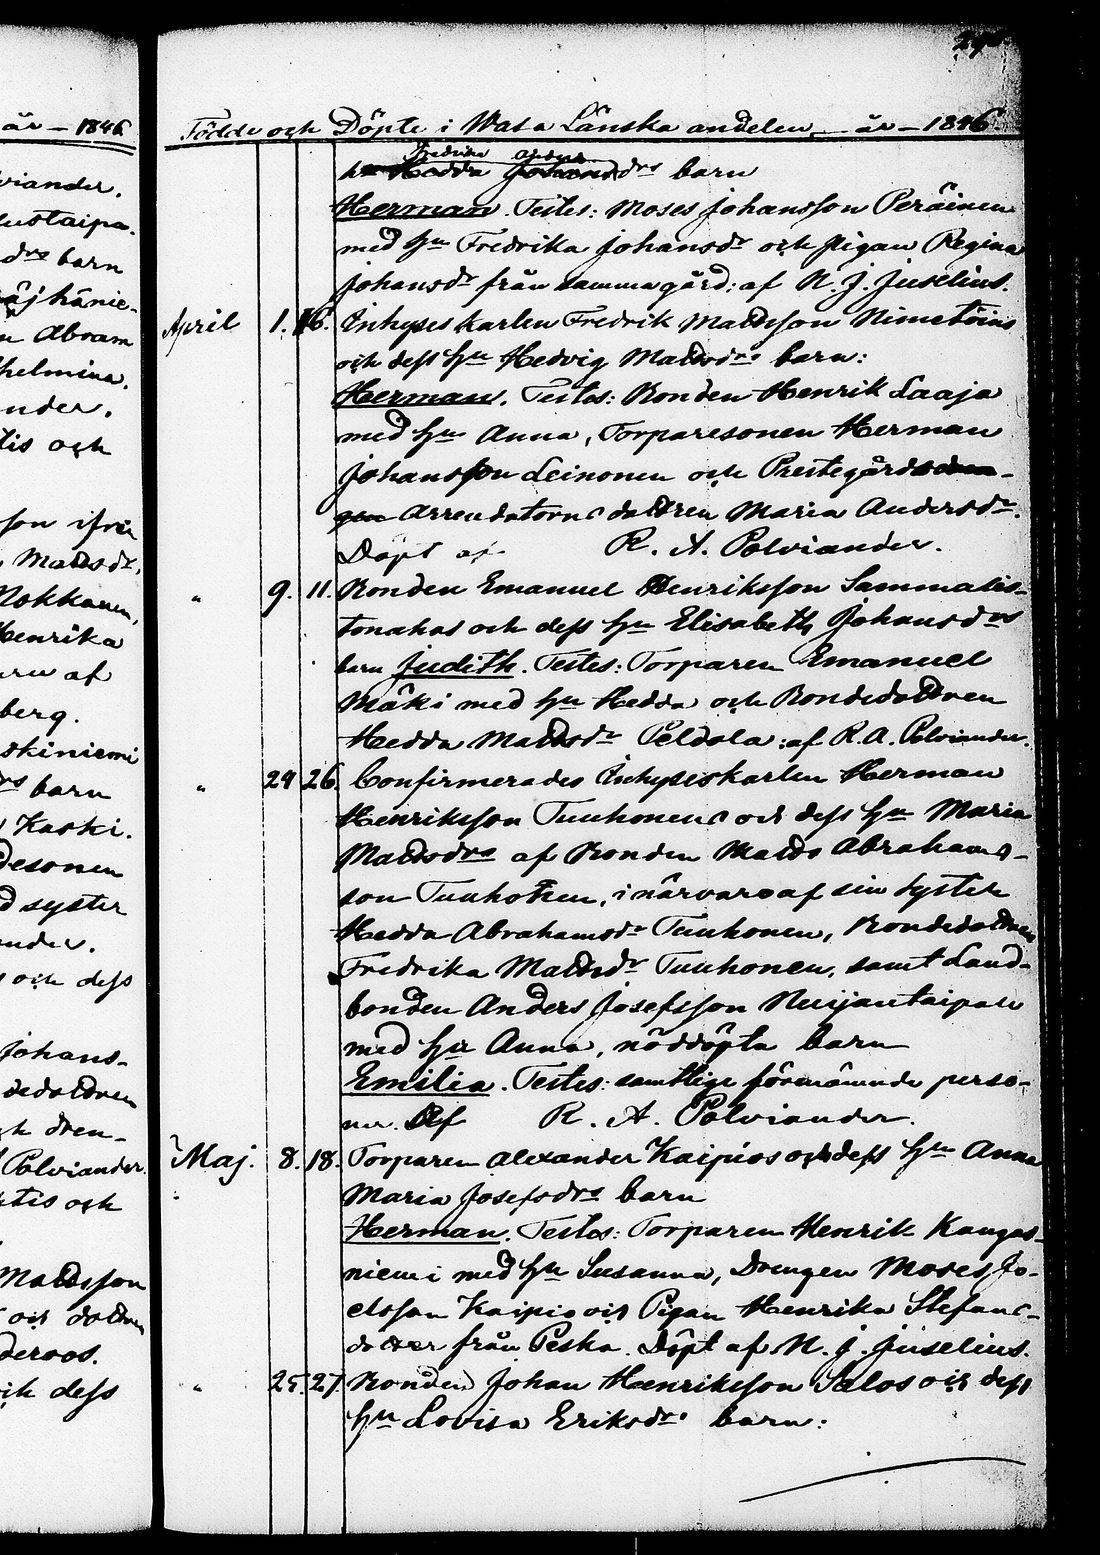 är – 1846
viander.
ustaipa.
drs barn
äjhänie-
n Abram
helmina.
nder.
tis och
son ifrån
Mattsdr,
Nokkanen,
Henrika
arn af
berg.
skiniemi
drs barn
Kaski.
desonen
d syster
nder.
och dess
Johans-
dedottren
ch dren-
Polviander.
ptis och
Mattsson
och dottren
deroos.
ch dess
Födde och Döpte i Wasa Länska andelen år – 1846
Fredrika
hu Hedda Johansdrs barn
Herman. Testes: Moses Johansson Peräinen
med hu Fredrika Johansdr och pigan Regina
Johansdr från samma gård: af N. J. Juselius.
April 1. 16. Inhyses karlen Fredrik Mattsson Nimetöins
och dess hu Hedvig Mattsdrs barn:
Herman. Testes: Bonden Henrik Laaja
med hu Anna, Torparesonen Herman
Johansson Leinonen och Prestegårdsdren-
gen Arrendatorns dottren Maria Andersdr.
Döpt af R. A. Polviander.
" 9. 11. Bonden Emanuel Henriksson Sammalis-
tonahos och dess hu Elisabeth Johansdrs
barn Judith. Testes: Torparen Emanuel
Mäki med hu Hedda och Bondedottren
Hedda Mattsdr Peldola: af R. A. Polviander.
" 24 26. Confirmerades Inhyseskarlen Herman
Henriksson Tuuhonens och dess hu Maria
Mattsdrs af Bonden Matts Abrahams-
son Tuuhonen, i närvaro af sin syster
Hedda Abrahamsdr Tuuhonen, Bondedottren
Fredrika Mattsdr Tuuhonen, samt Land-
bonden Anders Josefsson Neujantaipale
med hu Anna, nöddöpta barn
Emilia. Testes: samtlige förenämnde perso-
ner. Af R. A. Polviander.
Maj. 8. 18. Torparen Alexander Kaipios och dess hu Anna
Maria Josefsdrs barn
Herman. Testes: Torparen Henrik Kangas-
niemi med hu Susanna, Drengen Moses Jo-
elsson Kaipio och Pigan Henrika Stefans-
dotter från Peska. Döpt af N. J. Juselius.
" 25. 27. Bonden Johan Henriksson Salos och dess
hu Lovisa Eriksdrs barn: